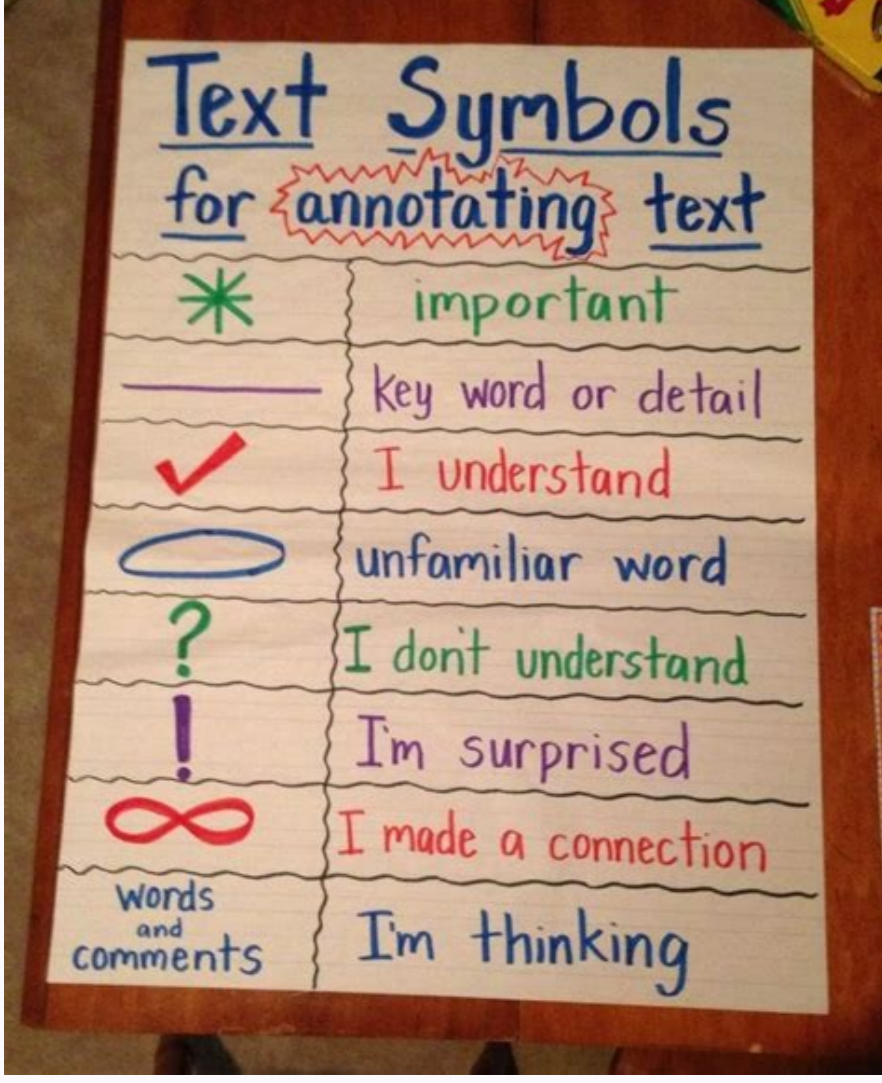 Text Symbols
for annotating text
* important
key word or detail
✓ I understand
unfamiliar word
? I don't understand
! I'm surprised
∞ I made a connection
words
and
comments
I'm thinking